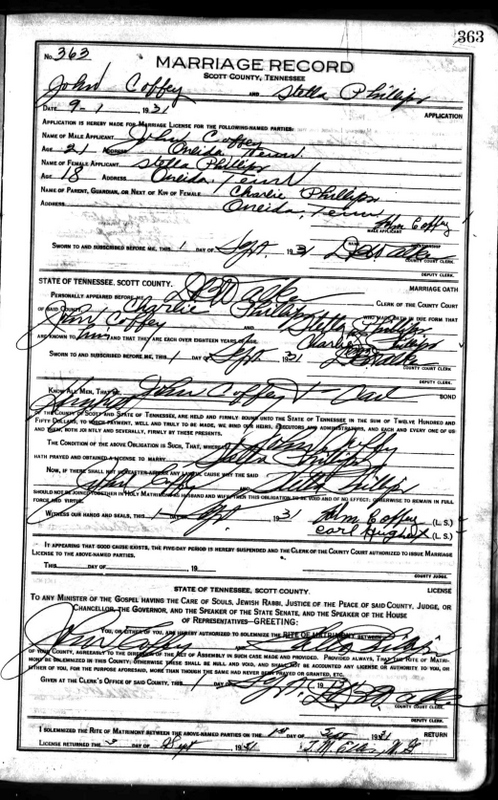 363
No. 363
MARRIAGE RECORD
SCOTT COUNTY, TENNESSEE
John Coffey AND Stella Phillips
DATE 9-1, 1931 APPLICATION
APPLICATION IS HEREBY MADE FOR MARRIAGE LICENSE FOR THE FOLLOWING-NAMED PARTIES:
NAME OF MALE APPLICANT John Coffey
AGE 21 ADDRESS Oneida, Tenn.
NAME OF FEMALE APPLICANT Stella Phillips
AGE 18 ADDRESS Oneida, Tenn
NAME OF PARENT, GUARDIAN, OR NEXT OF KIN OF FEMALE Charlie Phillips
ADDRESS Oneida, Tenn
John Coffey
MALE APPLICANT
SWORN TO AND SUBSCRIBED BEFORE ME, THIS 1 DAY OF Sept. 1931
COUNTY COURT CLERK.
DEPUTY CLERK.
STATE OF TENNESSEE, SCOTT COUNTY. MARRIAGE OATH
PERSONALLY APPEARED BEFORE ME, CLERK OF THE COUNTY COURT
OF SAID COUNTY, Charlie Phillips WHO MADE OATH IN DUE FORM THAT
John Coffey Stella Phillips
ARE KNOWN TO him AND THAT THEY ARE EACH OVER EIGHTEEN YEARS OF AGE. Charlie Phillips
SWORN TO AND SUBSCRIBED BEFORE ME, THIS 1 DAY OF Sept 1931
COUNTY COURT CLERK
DEPUTY CLERK
KNOW ALL MEN, THAT John Coffey & Carl BOND
Hughes
OF THE COUNTY OF SCOTT AND STATE OF TENNESSEE, ARE HELD AND FIRMLY BOUND UNTO THE STATE OF TENNESSEE IN THE SUM OF TWELVE HUNDRED AND
FIFTY DOLLARS, TO WHICH PAYMENT, WELL AND TRULY TO BE MADE, WE BIND OUR HEIRS, EXECUTORS AND ADMINISTRATORS, AND EACH AND EVERY ONE OF US
AND THEM, BOTH JOINTLY AND SEVERALLY, FIRMLY BY THESE PRESENTS.
THE CONDITION OF THE ABOVE OBLIGATION IS SUCH, THAT, WHEREAS John Coffey
HATH PRAYED AND OBTAINED A LICENSE TO MARRY Stella Phillips
NOW, IF THERE SHALL NOT HEREAFTER APPEAR ANY LAWFUL CAUSE WHY THE SAID
John Coffey Stella Phillips
SHOULD NOT BE JOINED TOGETHER IN HOLY MATRIMONY AS HUSBAND AND WIFE THEN THIS OBLIGATION TO BE VOID AND OF NO EFFECT; OTHERWISE TO REMAIN IN FULL
FORCE AND VIRTUE.
WITNESS OUR HANDS AND SEALS, THIS 1 DAY Sept. 1931 John Coffey (L. S.)
Carl Hughes X (L. S.)
IT APPEARING THAT GOOD CAUSE EXISTS, THE FIVE-DAY PERIOD IS HEREBY SUSPENDED AND THE CLERK OF THE COUNTY COURT AUTHORIZED TO ISSUE MARRIAGE
LICENSE TO THE ABOVE-NAMED PARTIES.
THIS DAY OF 19
COUNTY JUDGE.
STATE OF TENNESSEE, SCOTT COUNTY. LICENSE
TO ANY MINISTER OF THE GOSPEL HAVING THE CARE OF SOULS, JEWISH RABBI, JUSTICE OF THE PEACE OF SAID COUNTY, JUDGE, OR
CHANCELLOR, THE GOVERNOR, AND THE SPEAKER OF THE STATE SENATE, AND THE SPEAKER OF THE HOUSE
OF REPRESENTATIVES—GREETING:
YOU, OR EITHER OF YOU, ARE HEREBY AUTHORIZED TO SOLEMNIZE THE RITE OF MATRIMONY BETWEEN
John Coffey Stella Phillips
OF YOUR COUNTY, AGREEABLY TO THE DIRECTION OF THE ACT OF ASSEMBLY IN SUCH CASE MADE AND PROVIDED. PROVIDED ALWAYS, THAT THE RITE OF MATRIMONY
BE SOLEMNIZED IN THIS COUNTY, OTHERWISE THESE SHALL BE NULL AND VOID, AND SHALL NOT BE ACCOUNTED ANY LICENSE OR AUTHORITY TO YOU, OR
EITHER OF YOU, FOR THE PURPOSE AFORESAID, MORE THAN THOUGH THE SAME HAD NEVER BEEN PRAYED OR GRANTED, ETC.
GIVEN AT THE CLERK'S OFFICE OF SAID COUNTY, THIS 1 DAY OF Sept. 1931
COUNTY COURT CLERK
DEPUTY CLERK.
I SOLEMNIZED THE RITE OF MATRIMONY BETWEEN THE ABOVE-NAMED PARTIES ON THE 1st DAY OF Sept 1931 RETURN
LICENSE RETURNED THE 3 DAY OF Sept 1931